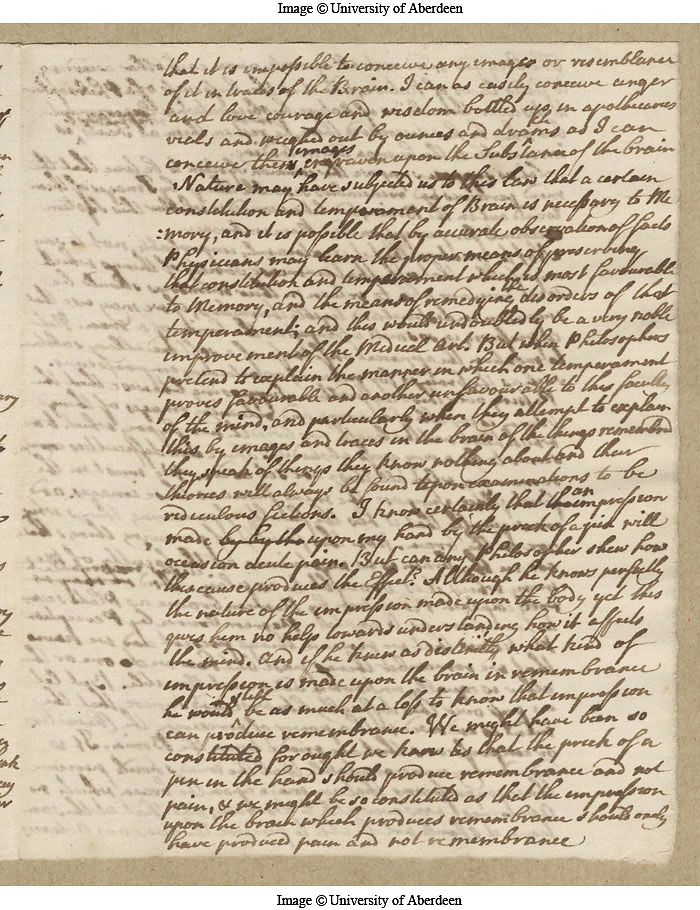 Image © University of Aberdeen
that it is impossible to conceive any images or resemblance
of it in traces of the Brain. I can as easily conceive anger
and love courage and wisdom bottled up in apothecaries
viels and weighed out by ounces and drams as I can
conceive their images engraven upon the Substance of the brain
Nature may have subjected us to this law that a certain
constitution and temperament of Brain is necessary to Me
:mory, and it is possible that by accurate observation of facts
Physicians may learn the proper means of preserving
that constitution and temperament which is most favourable
to Memory, and the means of remedying the disorders of that
temperament; and this would undoubtedly be a very noble
improvement of the Medical Art. But when Philosophers
pretend to explain the manner in which one temperament
proves favourable and another unfavourable to this faculty
of the mind, and particularly when they attempt to explain
this by images and traces in the brain of the things remembred
they speak of things they know nothing about and their
theories will always be found upon examinations to be
ridiculous fictions. I know certainly that an impression
made upon my hand by the prick of a pin will
occasion acute pain. But can any Philosopher shew how
this cause produces the Effect? Although he knows perfectly
the nature of the impression made upon the body yet this
gives him no help towards understanding how it affects
the mind. And if he knew as distinctly what kind of
impression is made upon the brain in remembrance
he would still be as much at a loss to know that impression
can produce remembrance. We might have been so
constituted for ought we know as that the prick of a
pin in the hand should produce remembrance and not
pain, & we might be so constituted as that the impression
upon the brain which produces remembrance should only
have produced pain and not remembrance
Image © University of Aberdeen